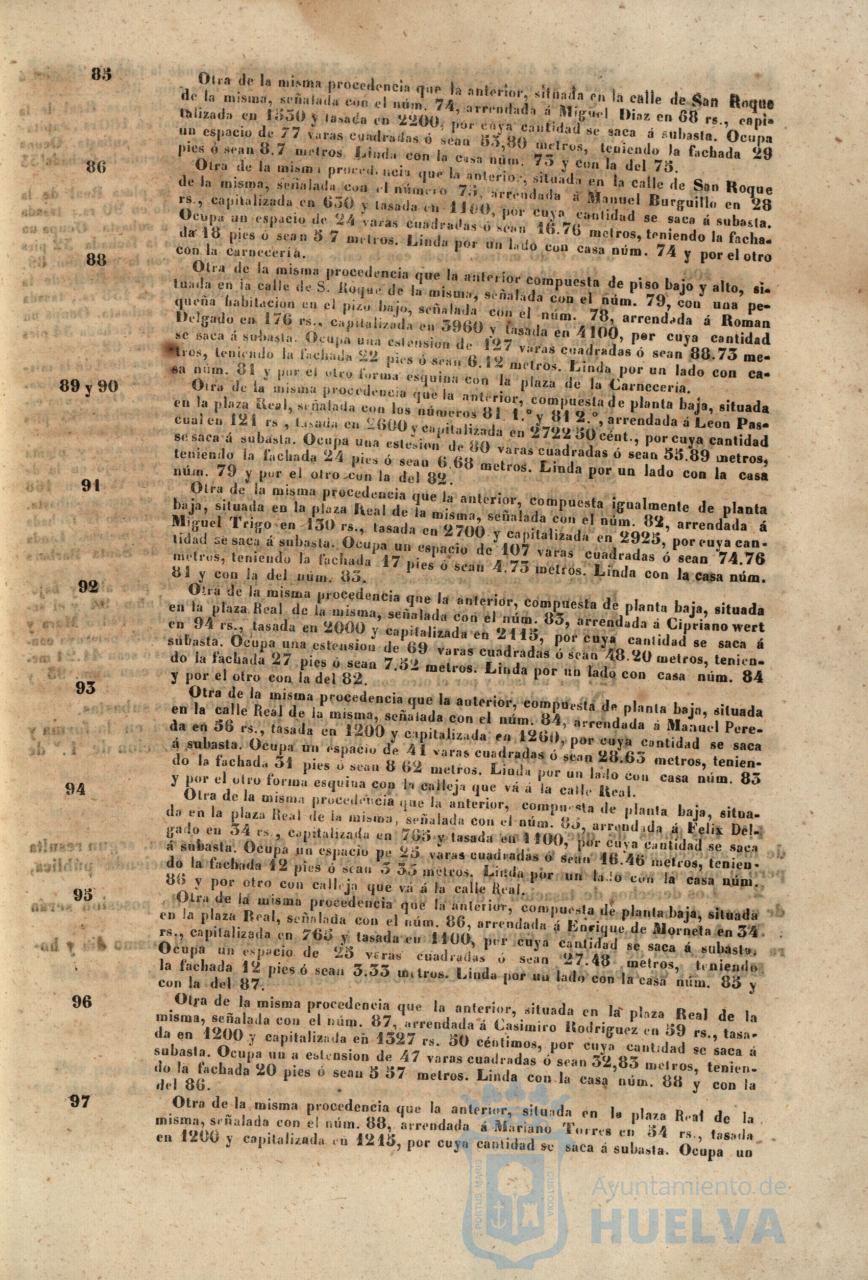 85
Otra de la misma procedencia que la anterior, situada en la calle de San Roque
de la misma, señalada con el núm. 74, arrendada á Miguel Diaz en 68 rs., capi-
talizada en 1530 y tasada en 2200, por cuya cantidad se saca á subasta. Ocupa
un espacio de 77 varas cuadradas ó sean 53,80 metros, teniendo la fachada 29
pies ó sean 8.7 metros Linda con la casa núm. 73 y con la del 75.
86
Otra de la misma procedencia que la anterior, situada en la calle de San Roque
de la misma, señalada con el número 75, arrendada á Manuel Burguillo en 28
rs., capitalizada en 630 y tasada en 1100, por cuya cantidad se saca á subasta.
Ocupa un espacio de 24 varas cuadradas ó sean 16.76 metros, teniendo la facha-
da 18 pies ó sean 5 7 metros. Linda por un lado con casa núm. 74 y por el otro
con la carnecería.
88
Otra de la misma procedencia que la anterior compuesta de piso bajo y alto, si-
tuada en la calle de S. Roque de la misma, señalada con el núm. 79, con una pe-
queña habitacion en el pizo bajo, señalada con el núm. 78, arrendada á Roman
Delgado en 176 rs., capitalizada en 3960 y tasada en 4100, por cuya cantidad
se saca á subasta. Ocupa una estension de 127 varas cuadradas ó sean 88.73 me-
tros, teniendo la fachada 22 pies ó sean 6.12 metros. Linda por un lado con ca-
sa núm. 81 y por el otro forma esquina con la plaza de la Carnecería.
89 y 90
Otra de la misma procedencia que la anterior, compuesta de planta baja, situada
en la plaza Real, señalada con los números 81 1.º y 81 2.º, arrendada á Leon Pas-
cual en 121 rs , tasada en 2600 y capitalizada en 2722 50 cént., por cuya cantidad
se saca á subasta. Ocupa una estesion de 80 varas cuadradas ó sean 55.89 metros,
teniendo la fachada 24 pies ó sean 6.68 metros. Linda por un lado con la casa
núm. 79 y por el otro con la del 82.
91
Otra de la misma procedencia que la anterior, compuesta igualmente de planta
baja, situada en la plaza Real de la misma, señalada con el núm. 82, arrendada á
Miguel Trigo en 130 rs., tasada en 2700 y capitalizada en 2925, por cuya can-
tidad se saca á subasta. Ocupa un espacio de 107 varas cuadradas ó sean 74.76
metros, teniendo la fachada 17 pies ó sean 4.73 metros. Linda con la casa núm.
81 y con la del núm. 83.
92
Otra de la misma procedencia que la anterior, compuesta de planta baja, situada
en la plaza Real de la misma, señalada con el núm. 83, arrendada á Cipriano wert
en 94 rs., tasada en 2000 y capitalizada en 2115, por cuya cantidad se saca á
subasta. Ocupa una estension de 69 varas cuadradas ó sean 48.20 metros, tenien-
do la fachada 27 pies ó sean 7.52 metros. Linda por un lado con casa núm. 84
y por el otro con la del 82.
93
Otra de la misma procedencia que la anterior, compuesta de planta baja, situada
en la calle Real de la misma, señalada con el núm. 84, arrendada á Manuel Pere-
da en 56 rs., tasada en 1200 y capitalizada en 1260, por cuya cantidad se saca
á subasta. Ocupa un espacio de 41 varas cuadradas ó sean 28.63 metros, tenien-
do la fachada 31 pies ó sean 8 62 metros. Linda por un lado con casa núm. 83
y por el otro forma esquina con la calleja que vá á la calle Real.
94
Otra de la misma procedencia que la anterior, compuesta de planta baja, situa-
da en la plaza Real de la misma, señalada con el núm. 85, arrendada á Felix Del-
gado en 34 rs , capitalizada en 765 y tasada en 1100, por cuya cantidad se saca
á subasta. Ocupa un espacio pe 25 varas cuadradas ó sean 16.46 metros, tenien-
do la fachada 12 pies ó sean 3 33 metros. Linda por un lado con la casa núm.
86 y por otro con calleja que vá á la calle Real.
95
Otra de la misma procedencia que la anterior, compuesta de planta baja, situada
en la plaza Real, señalada con el núm. 86, arrendada á Enrique de Morneta en 34
rs., capitalizada en 765 y tasada en 1100, por cuya cantidad se saca á subasta.
Ocupa un espacio de 25 varas cuadradas ó sean 27.48 metros, teniendo
la fachada 12 pies ó sean 3.33 metros. Linda por un lado con la casa núm. 85 y
con la del 87.
96
Otra de la misma procedencia que la anterior, situada en la plaza Real de la
misma, señalada con el núm. 87, arrendada á Casimiro Rodriguez en 59 rs., tasa-
da en 1200 y capitalizada en 1327 rs. 50 céntimos, por cuya cantidad se saca á
subasta. Ocupa un a estension de 47 varas cuadradas ó sean 32,83 metros, tenien-
do la fachada 20 pies ó sean 5 57 metros. Linda con la casa núm. 88 y con la
del 86.
97
Otra de la misma procedencia que la anterior, situada en la plaza Real de la
misma, señalada con el núm. 88, arrendada á Mariano Torres en 54 rs., tasada
en 1200 y capitalizada en 1215, por cuya cantidad se saca á subasta. Ocupa un
Ayuntamiento de
HUELVA